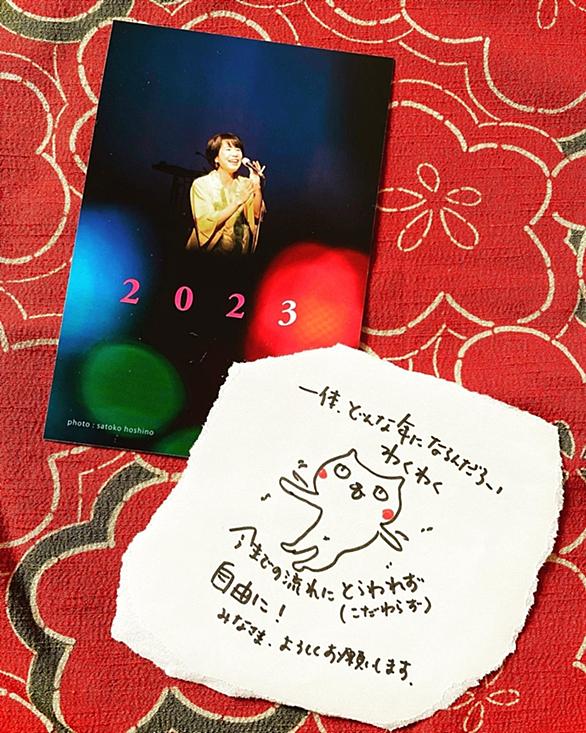 2023
photo : satoko hoshino
一体、どんな年になるんだろー、
わくわく
今までの流れに とらわれず
(こだわらず)
自由に！
みなさま、よろしくお願いします。